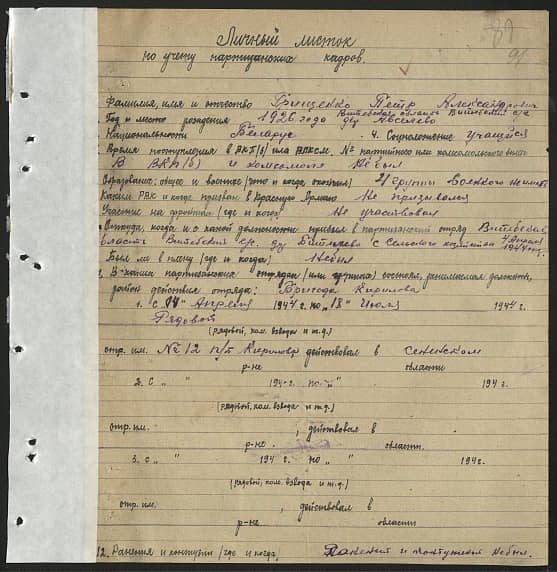 89
91
Личный листок
по учету партизанских кадров.
Фамилия, имя и отчество Гриценко Петр Александрович
Год и место рождения 1926 года Витебская область Витебский с/с дер.
Национальность Беларус 4. Соцположение Учащийся
Время поступления в ВКП(б) или ВЛКСМ, № партийного или комсомольского билета
В ВКП(б) и комсомоле не был
Образование: общее и военное (что и когда окончил) группы Военкого не имеет
Каким РВК и когда призван в Красную Армию Не призывался
Участие на фронтах (где и когда) Не участвовал
Откуда, когда и с какой должности прибыл в партизанский отряд Витебская
область Витебский с/с. дер с Сельского хозяйства 4 Апреля 1944 год.
Был ли в плену (где и когда) Не был
В каких партизанских отрядах (или группах) состоял, занимаемая должность,
район действия отряда: Бригада Кирилова
1. С "14" Апреля 1944 г. по "18" Июля 1944 г.
Рядовой
(рядовой, ком. взвода и т.д.)
отр. им. № 12 п/п Кирилова действовал в сененском
р-не области
2. С " " 194 г. по " " 194 г.
(рядовой, ком. взвода и т.д.)
отр. им. , действовал в
р-не области.
3. с " " 194 г. по " " 194 г.
(рядовой, ком. взвода и т.д.)
отр. им. , действовал в
р-не области
12. Ранения и контузии (где и когда) Ранений и контузий не был.